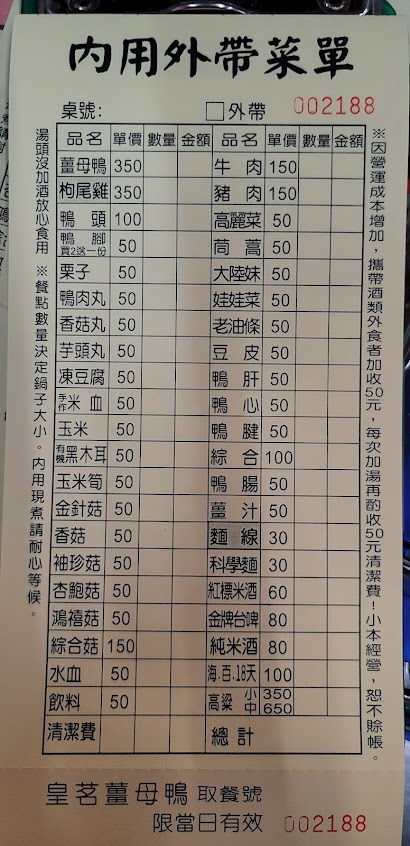 內用外帶菜單
桌號: □外帶 002188
品名 單價 數量 金額 品名 單價 數量 金額
薑母鴨 350 牛肉 150
枸尾雞 350 豬肉 150
鴨頭 100 高麗菜 50
鴨腳 買2送一份 50 茼蒿 50
栗子 50 大陸妹 50
鴨肉丸 50 娃娃菜 50
香菇丸 50 老油條 50
芋頭丸 50 豆皮 50
凍豆腐 50 鴨肝 50
手作米血 50 鴨心 50
玉米 50 鴨腱 50
有機黑木耳 50 綜合 100
玉米筍 50 鴨腸 50
金針菇 50 薑汁 50
香菇 50 麵線 30
袖珍菇 50 科學麵 30
杏鮑菇 50 紅標米酒 60
鴻禧菇 50 金牌台啤 80
綜合菇 150 純米酒 80
水血 50 海.百.18天 100
飲料 50 高粱 小 350 中 650
清潔費 總計
湯頭沒加酒放心食用 ※餐點數量決定鍋子大小。內用現煮請耐心等候。
※因營運成本增加,攜帶酒類外食者加收50元,每次加湯再酌收50元清潔費!小本經營,恕不賒帳。
皇茗薑母鴨 取餐號
限當日有效 002188